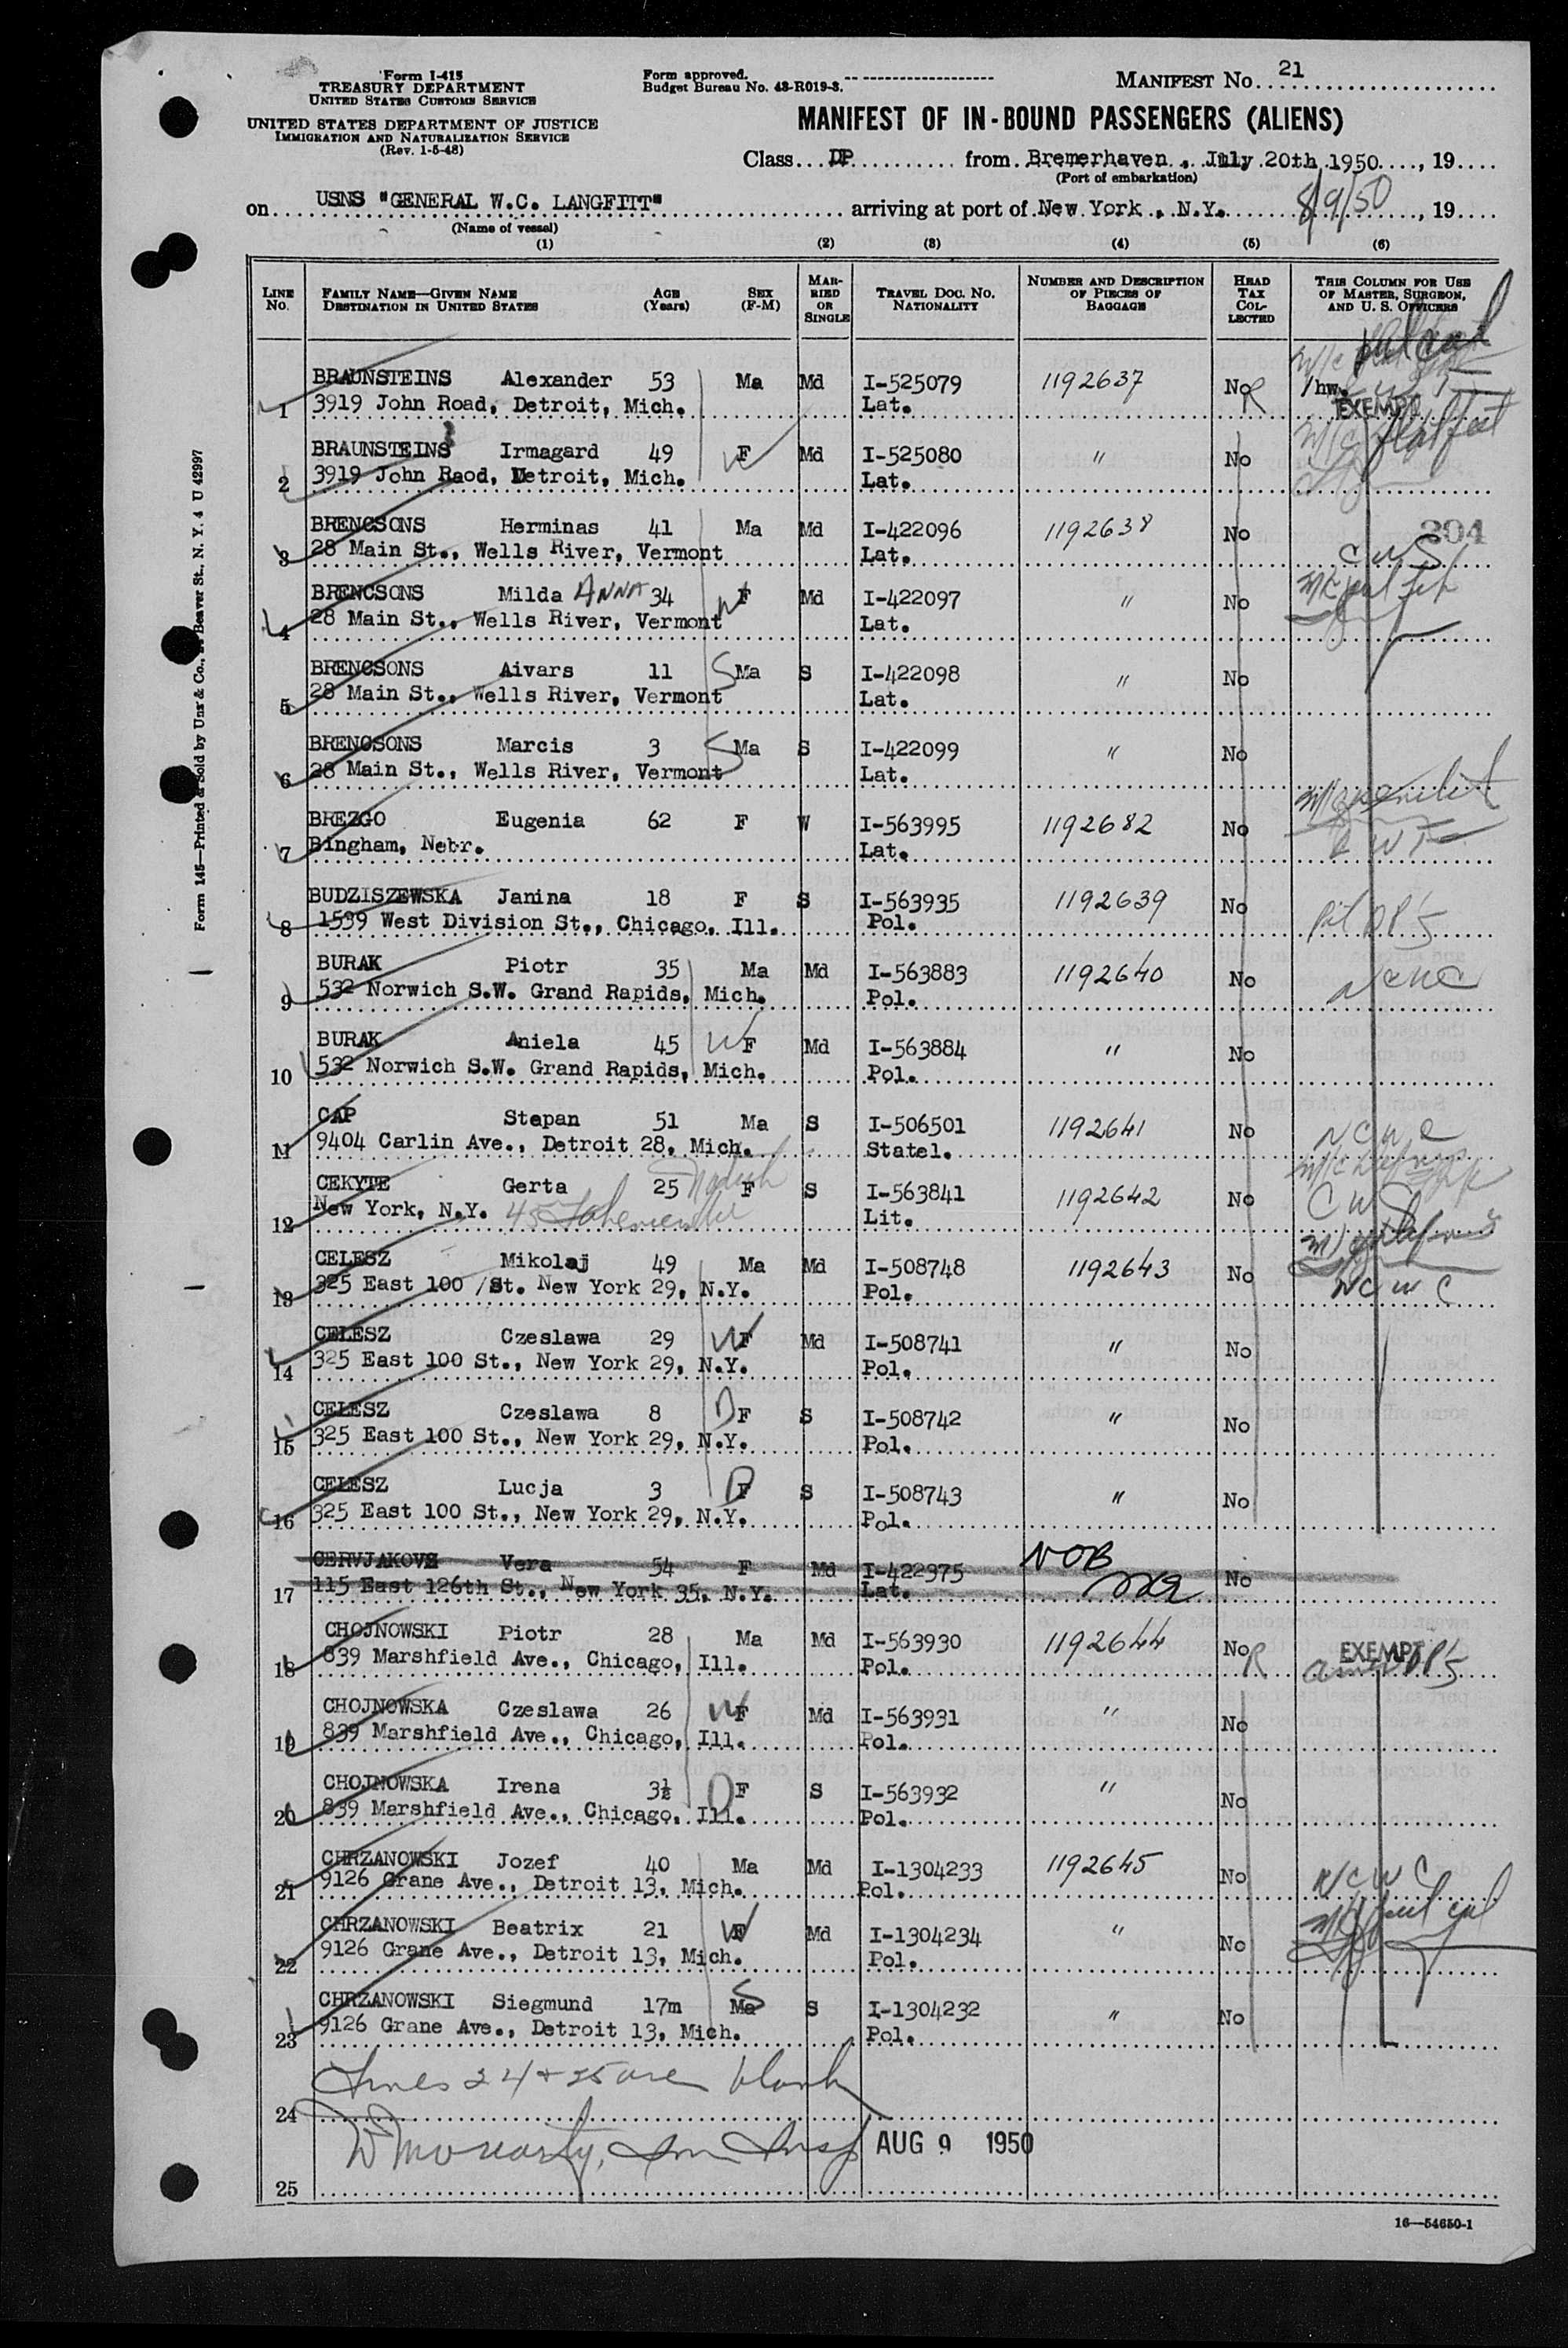 Form I-415
TREASURY DEPARTMENT
UNITED STATES CUSTOMS SERVICE
UNITED STATES DEPARTMENT OF JUSTICE
IMMIGRATION AND NATURALIZATION SERVICE
(Rev. 1-5-48)
Form approved.
Budget Bureau No. 43-R019-3.
MANIFEST NO. 21
MANIFEST OF IN-BOUND PASSENGERS (ALIENS)
Class DP from Bremerhaven, July 20th 1950, 19
(Port of embarkation)
on USNS "GENERAL W.C. LANGFITT" arriving at port of New York, N.Y. 8/9/50, 19
(Name of vessel)
(1) (2) (3) (4) (5) (6)
LINE NO. FAMILY NAME—GIVEN NAME DESTINATION IN UNITED STATES AGE (Years) SEX (F-M) MARRIED OR SINGLE TRAVEL DOC. NO. NATIONALITY NUMBER AND DESCRIPTION OF PIECES OF BAGGAGE HEAD TAX COLLECTED THIS COLUMN FOR USE OF MASTER, SURGEON, AND U. S. OFFICERS
BRAUNSTEINS Alexander 53 Ma Md I-525079 1192637 No R /hw.
1 3919 John Road, Detroit, Mich. Lat. EXEMPT
BRAUNSTEINS Irmagard 49 W F Md I-525080 " No
2 3919 John Raod, Detroit, Mich. Lat.
BRENCSONS Herminas 41 Ma Md I-422096 1192638 No 304
3 28 Main St., Wells River, Vermont Lat. CWS
BRENCSONS Milda ANNA 34 W F Md I-422097 " No
4 28 Main St., Wells River, Vermont Lat.
BRENCSONS Aivars 11 S Ma S I-422098 " No
5 28 Main St., Wells River, Vermont Lat.
BRENCSONS Marcis 3 S Ma S I-422099 " No
6 28 Main St., Wells River, Vermont Lat.
BREZGO Eugenia 62 F W I-563995 1192682 No
7 Bingham, Nebr. Lat.
BUDZISZEWSKA Janina 18 F S I-563935 1192639 No
8 1539 West Division St., Chicago, Ill. Pol.
BURAK Piotr 35 Ma Md I-563883 1192640 No
9 532 Norwich S.W. Grand Rapids, Mich. Pol. NCWC
BURAK Aniela 45 W F Md I-563884 " No
10 532 Norwich S.W. Grand Rapids, Mich. Pol.
CAP Stepan 51 Ma S I-506501 1192641 No
11 9404 Carlin Ave., Detroit 28, Mich. Statel. NCWC
CEKYTE Gerta 25 F S I-563841 1192642 No
12 New York, N.Y. Lit. CWS
CELESZ Mikolaj 49 Ma Md I-508748 1192643 No
13 325 East 100 /St. New York 29, N.Y. Pol. NCWC
CELESZ Czeslawa 29 W F Md I-508741 " No
14 325 East 100 St., New York 29, N.Y. Pol.
CELESZ Czeslawa 8 D F S I-508742 " No
15 325 East 100 St., New York 29, N.Y. Pol.
CELESZ Lucja 3 D F S I-508743 " No
16 325 East 100 St., New York 29, N.Y. Pol.
CERVJAKOVS Vera 54 F Md I-422375 NOB No
17 115 East 126th St., New York 35, N.Y. Lat.
CHOJNOWSKI Piotr 28 Ma Md I-563930 1192644 No R EXEMPT
18 839 Marshfield Ave., Chicago, Ill. Pol.
CHOJNOWSKA Czeslawa 26 W F Md I-563931 " No
19 839 Marshfield Ave., Chicago, Ill. Pol.
CHOJNOWSKA Irena 3½ D F S I-563932 " No
20 839 Marshfield Ave., Chicago, Ill. Pol.
CHRZANOWSKI Jozef 40 Ma Md I-1304233 1192645 No
21 9126 Grane Ave., Detroit 13, Mich. Pol. NCWC
CHRZANOWSKI Beatrix 21 W F Md I-1304234 " No
22 9126 Grane Ave., Detroit 13, Mich. Pol.
CHRZANOWSKI Siegmund 17m S Ma S I-1304232 " No
23 9126 Grane Ave., Detroit 13, Mich. Pol.
Lines 24 + 25 are blank
24
W Moriarty, Imm Insp AUG 9 1950
25
16—54650-1
Form 145—Printed & Sold by Unz & Co., Beaver St., N. Y. 4 U 42997